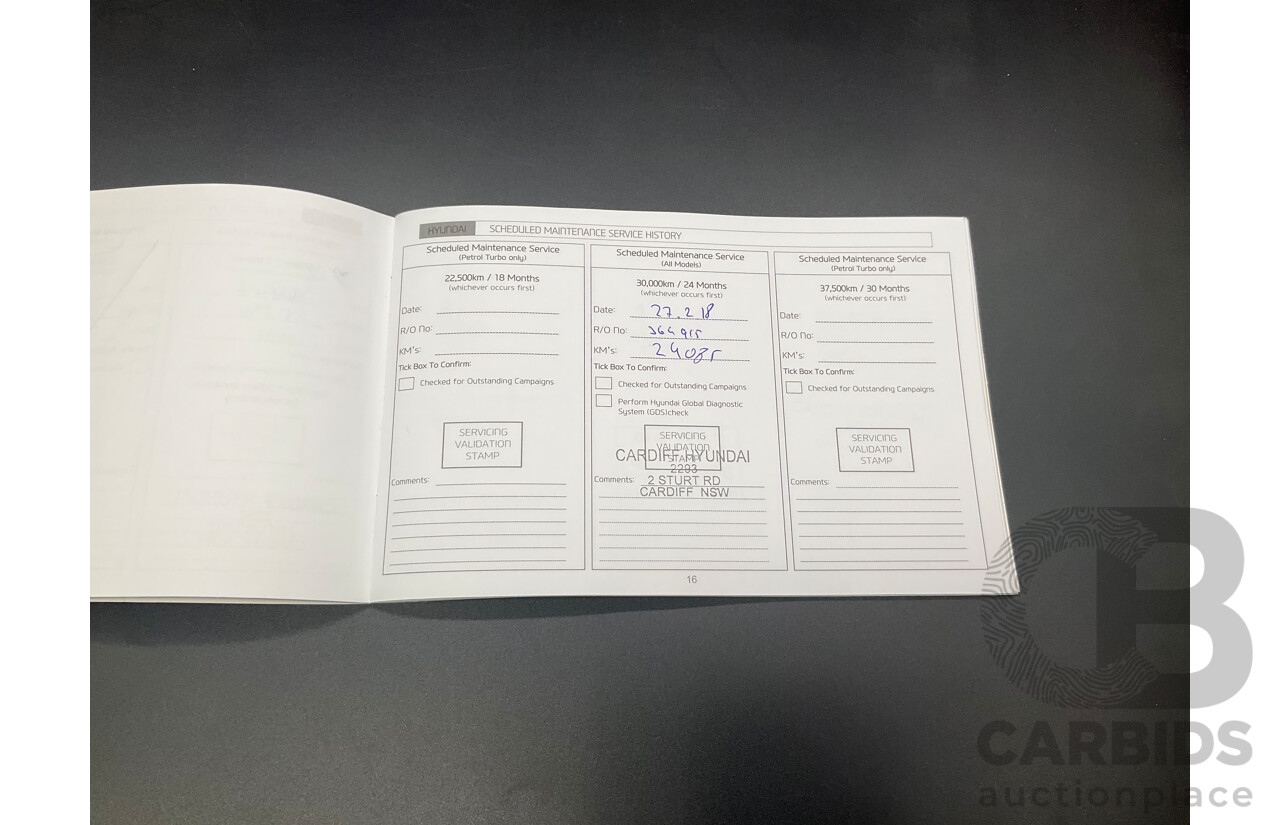 HYUNDAI SCHEDULED MAINTENANCE SERVICE HISTORY
Scheduled Maintenance Service
(Petrol Turbo only)
22,500km / 18 Months
(whichever occurs first)
Date:
R/O No:
KM's:
Tick Box To Confirm:
Checked for Outstanding Campaigns
SERVICING
VALIDATION
STAMP
Comments:
Scheduled Maintenance Service
(All Models)
30,000km / 24 Months
(whichever occurs first)
Date: 27.2.18
R/O No:
KM's: 24085
Tick Box To Confirm:
Checked for Outstanding Campaigns
Perform Hyundai Global Diagnostic
System (GDS)check
SERVICING
VALIDATION
STAMP
CARDIFF HYUNDAI
2293
Comments: 2 STURT RD
CARDIFF NSW
Scheduled Maintenance Service
(Petrol Turbo only)
37,500km / 30 Months
(whichever occurs first)
Date:
R/O No:
KM's:
Tick Box To Confirm:
Checked for Outstanding Campaigns
SERVICING
VALIDATION
STAMP
Comments:
16
CB
CARBIDS
auctionplace